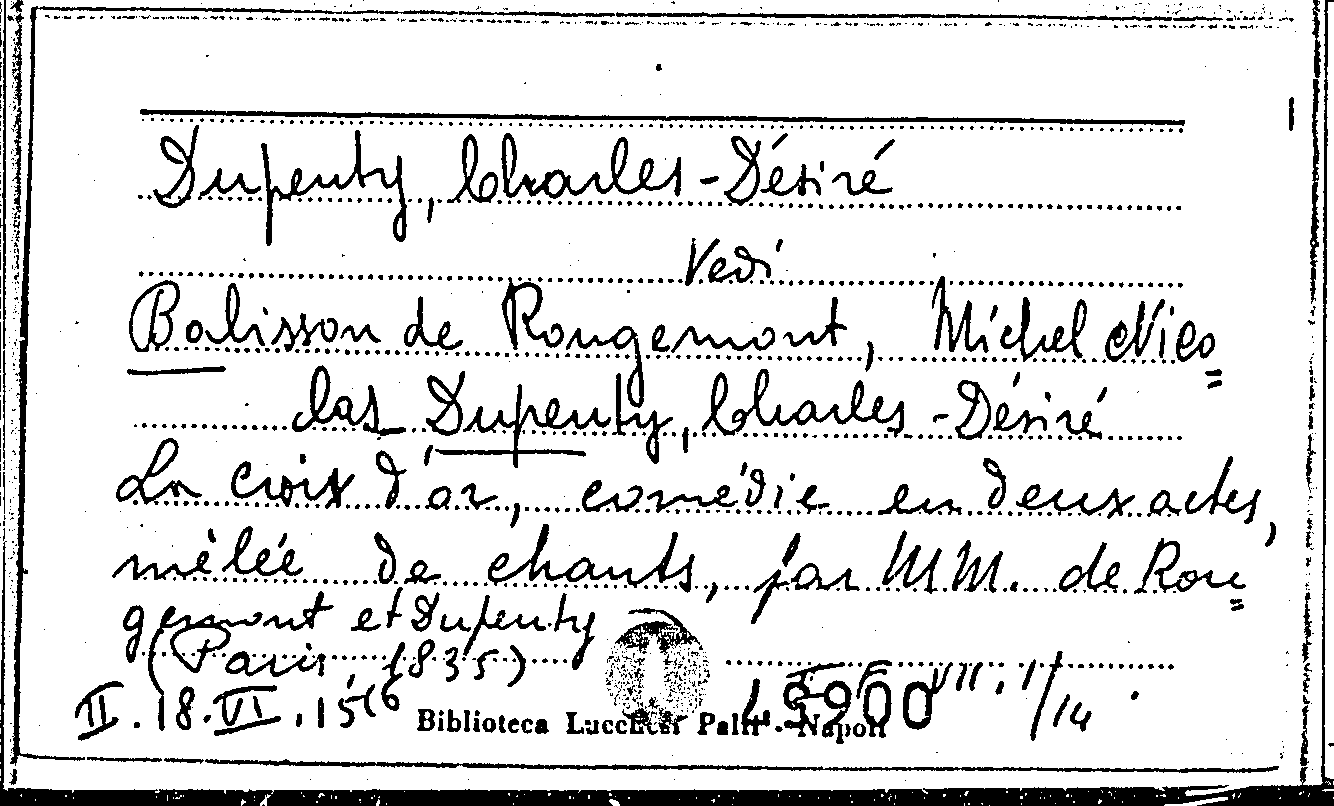 Dupenty, Charles-Désiré
Vedi
Balisson de Rougemont, Michel Nico=
las Dupenty, Charles-Désiré
La croix d'or, comédie en deux actes,
mêlée de chants, par MM. de Rou=
gemont et Dupenty
(Paris, 1835)
II.18.VI.15/16
Biblioteca Lucchesi Palli - Napoli